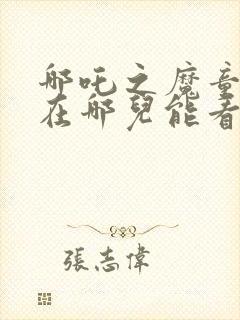 哪吒之魔童
在哪兒能看
張志偉